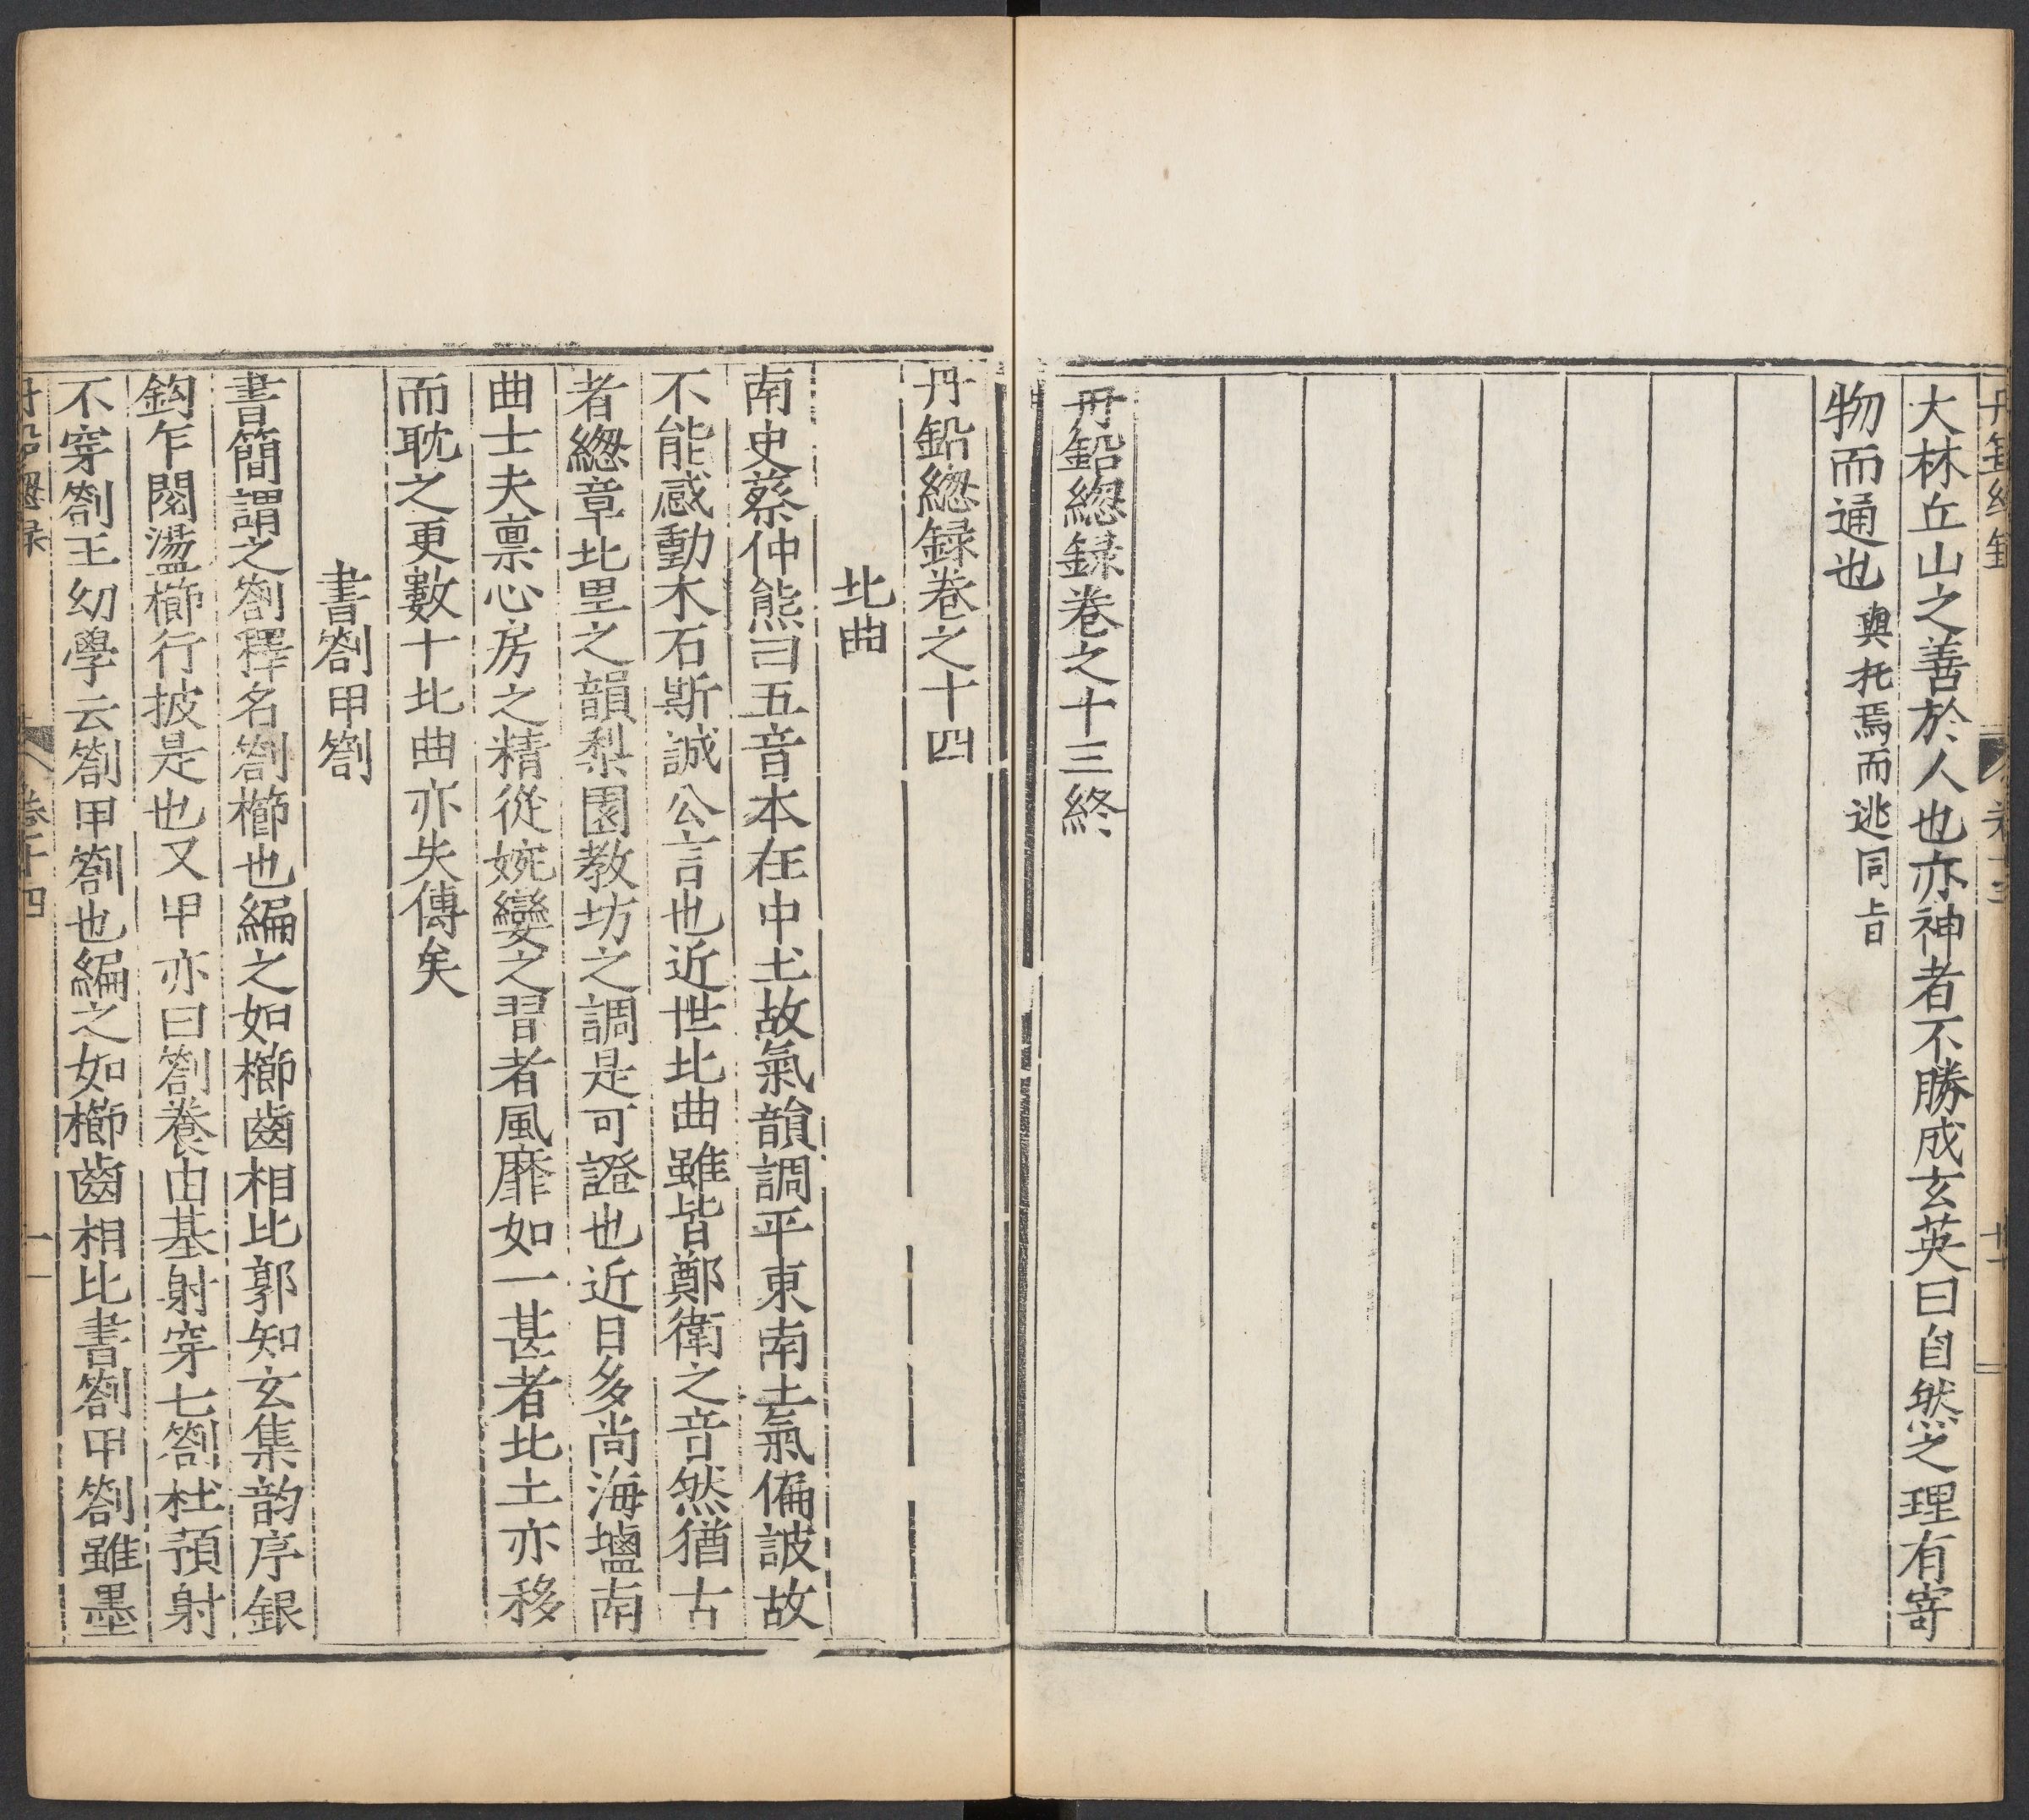 大林丘山之善於人也亦神者不勝成玄英曰自然之理有寄
物而通也與托焉而逃同旨
丹鉛總録卷之十三終
丹鉛總録卷之十四
北曲
南史蔡仲熊曰五音本在中土故氣韻調平東南土氣偏詖故
不能感動木石斯誠公言也近世北曲雖皆鄭衛之音然猶古
者總章北里之韻梨園教坊之調是可證也近日多尚海塩南
曲士夫禀心房之精從婉孌之習者風靡如一甚者北土亦移
而耽之更數十北曲亦失傳矣
書劄甲劄
書簡謂之劄釋名劄櫛也編之如櫛齒相比郭知玄集韵序銀
鈎乍閱蕩櫛行披是也又甲亦曰劄養由基射穿七劄杜預射
不穿劄王幼學云劄甲劄也編之如櫛齒相比書劄甲劄雖墨
丹鉛總録 卷十四 一